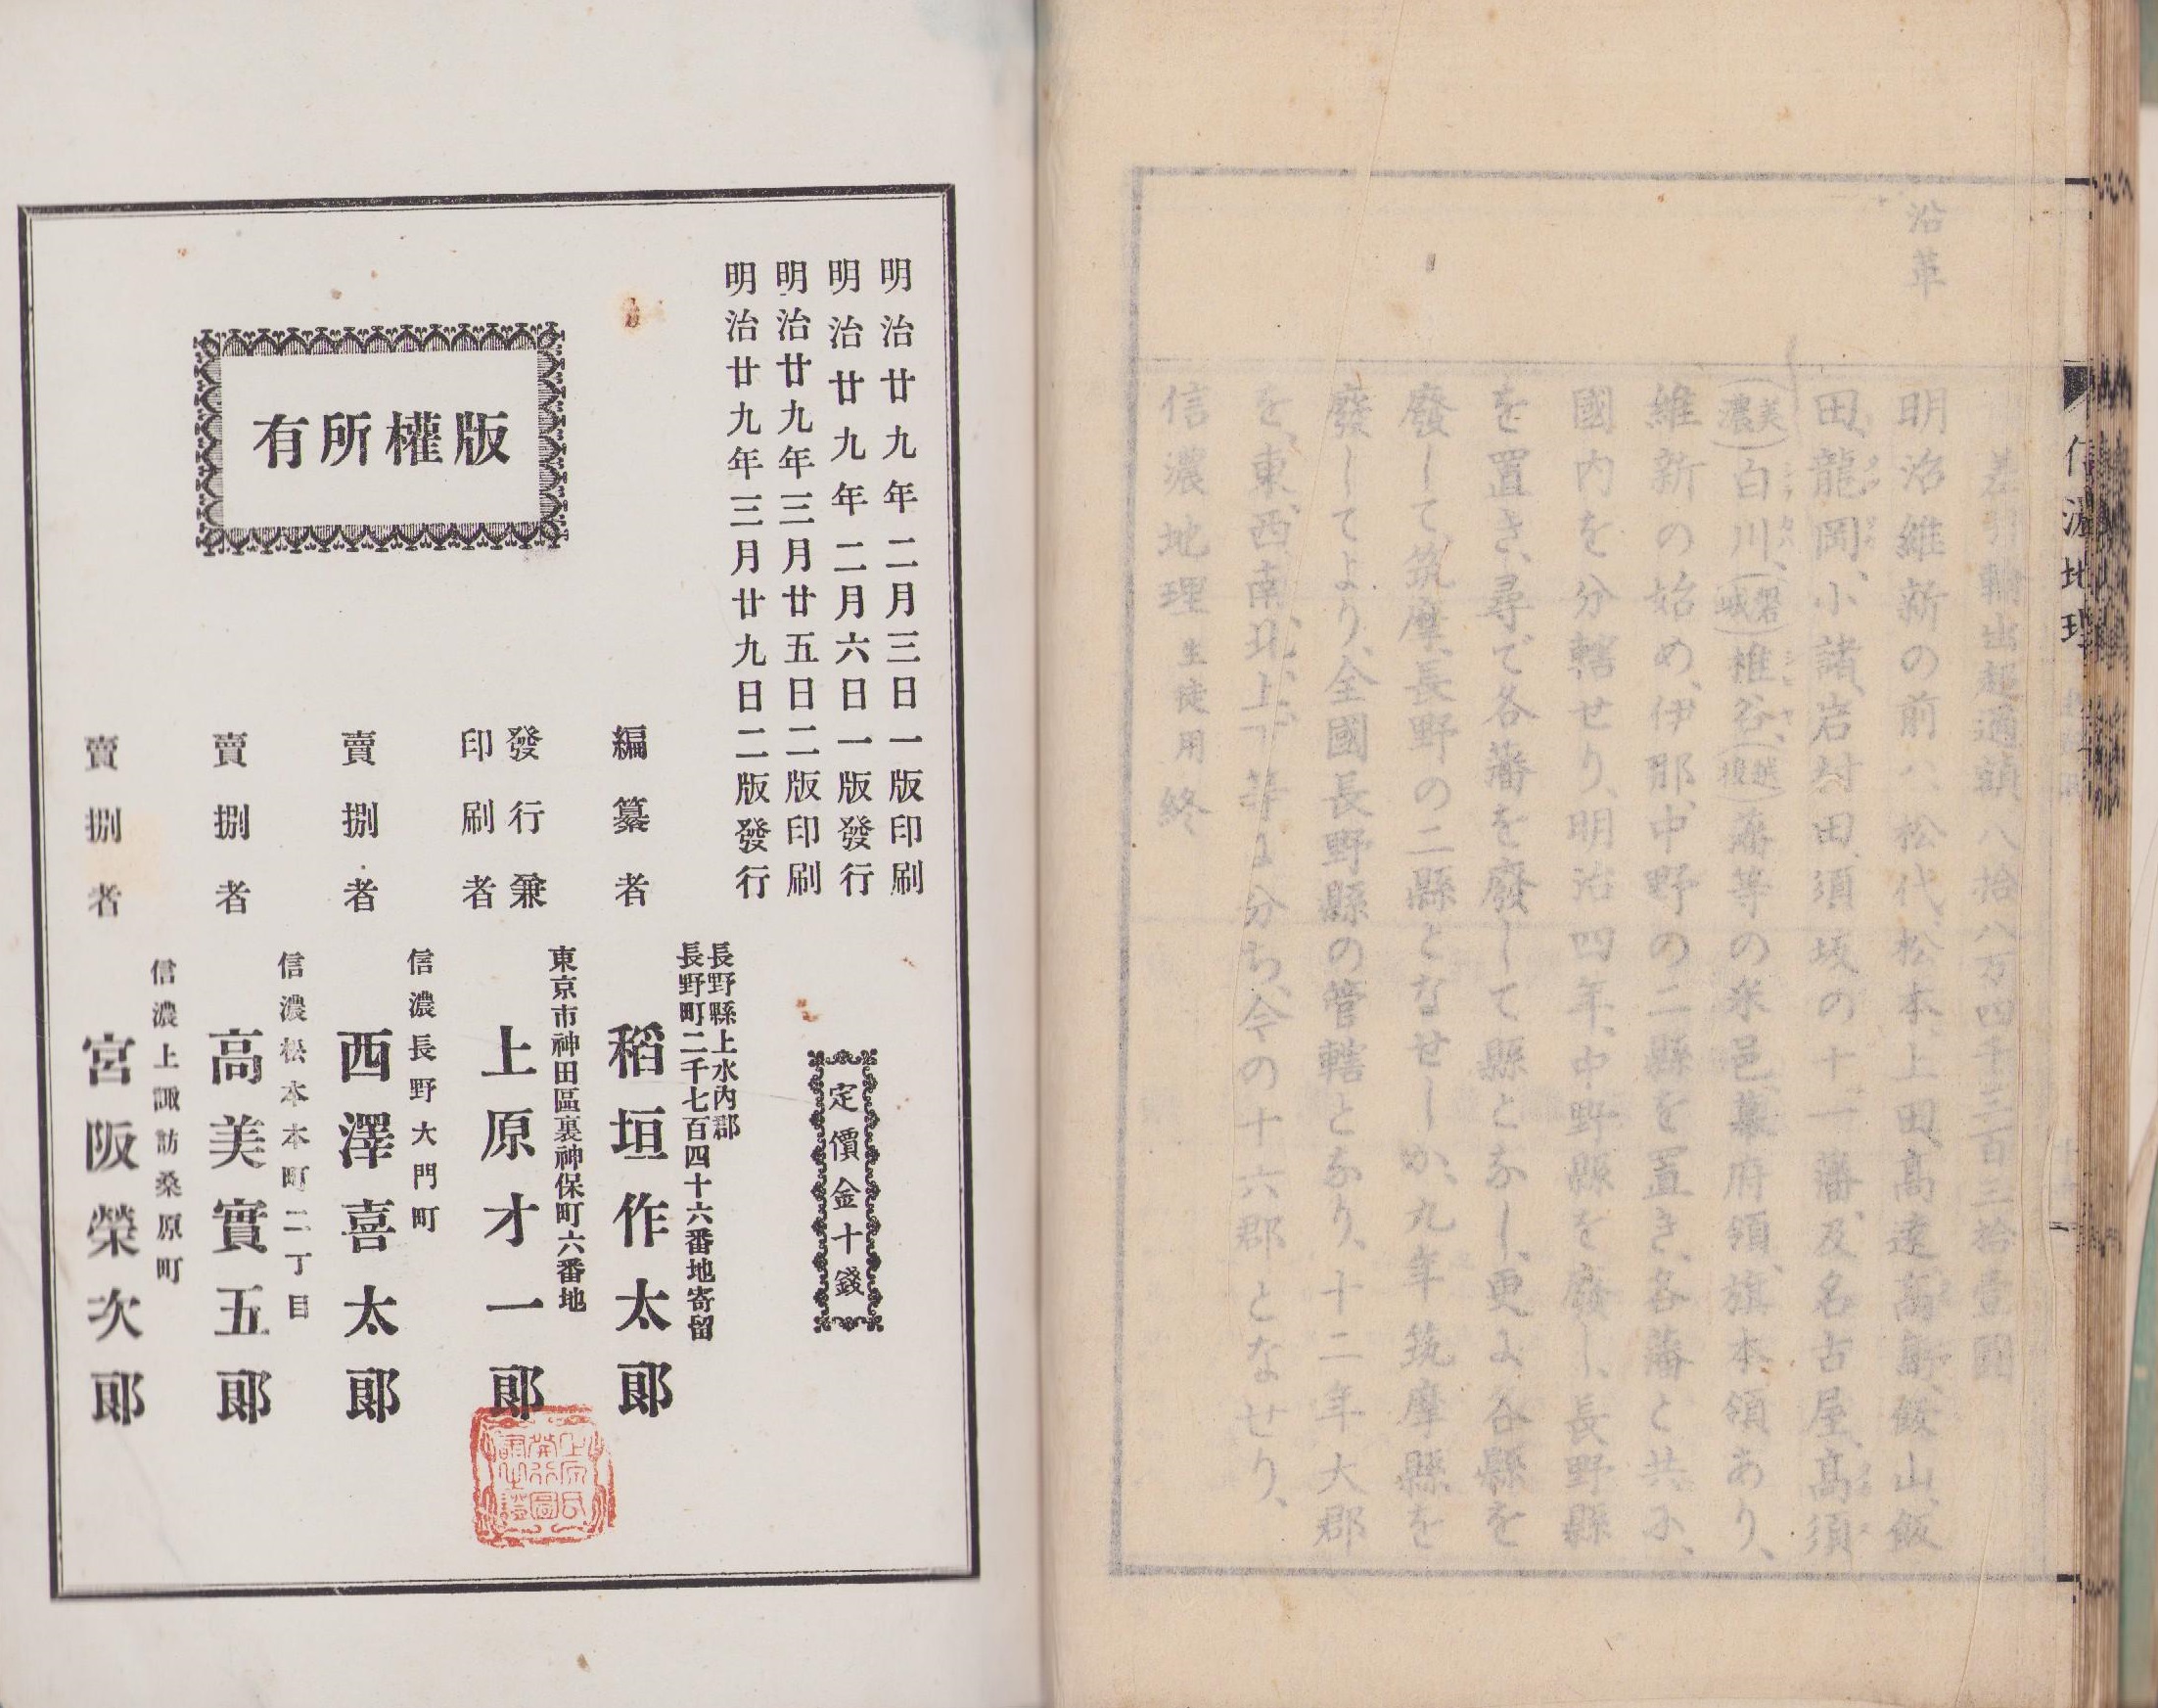 沿革
差引輸出超過額八拾八万四千三百三拾壹圓
明治維新の前ハ松代、松本、上田、高遠、高島、飯山、飯
田、龍岡、小諸、岩村田、須坂の十一藩、及名古屋、高須
(美濃)白川、(磐城)椎谷、(越後)藩等の釆邑、幕府領、旗本領あり、
維新の始め、伊那、中野の二縣を置き、各藩と共に、
國内を分轄せり、明治四年、中野縣を廢し、長野縣
を置き、尋で各藩を廢して縣となし、更に各縣を
廢して、筑摩、長野の二縣となせしか、九年筑摩縣を
廢してより、全國長野縣の管轄となり、十二年大郡
を、東、西、南、北、上、下等に分ち、今の十六郡となせり、
信濃地理生徒用終
信濃地理
明治廿九年二月三日一版印刷
明治廿九年二月六日一版發行
明治廿九年三月廿五日二版印刷
明治廿九年三月廿九日二版發行
定價金十錢
長野縣上水內郡
長野町二千七百四十六番地寄留
編纂者 稻垣作太郎
東京市神田區裏神保町六番地
發行兼
印刷者 上原才一郎
信濃長野大門町
賣捌者 西澤喜太郎
信濃松本本町二丁目
賣捌者 高美實五郎
信濃上諏訪桑原町
賣捌者 宮阪榮次郎
版權所有